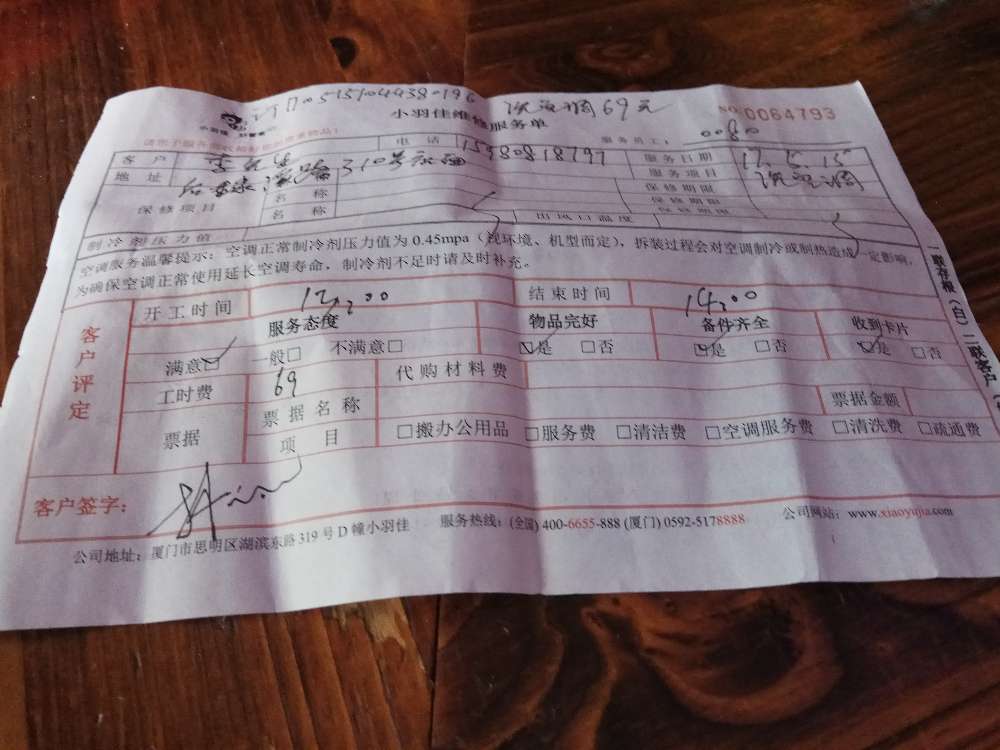 69元
小羽佳维修服务单
NO:0064793
小羽佳
电话 15980818797 服务员工: 0080
客户 服务日期 17.5.15
地址 310号 服务项目
保修项目 名称 保修期限
名称 保修期限
制冷剂压力值 出风口温度
空调服务温馨提示:空调正常制冷剂压力值为0.45mpa(视环境、机型而定),拆装过程会对空调制冷或制热造成一定影响,
为确保空调正常使用延长空调寿命,制冷剂不足时请及时补充。
客户评定
开工时间 12:00 结束时间 14:00
服务态度 物品完好 备件齐全 收到卡片
满意☑ 一般□ 不满意□ ☑是 □否 ☑是 □否 ☑是 □否
工时费 69 代购材料费
票据 票据名称 票据金额
项目 □搬办公用品 □服务费 □清洁费 □空调服务费 □清洗费 □疏通费
客户签字:
公司地址:厦门市思明区湖滨东路319号D幢小羽佳 服务热线:(全国)400-6655-888 (厦门)0592-5178888 公司网站:www.xiaoyujia.com
一联存根(白)二联客户